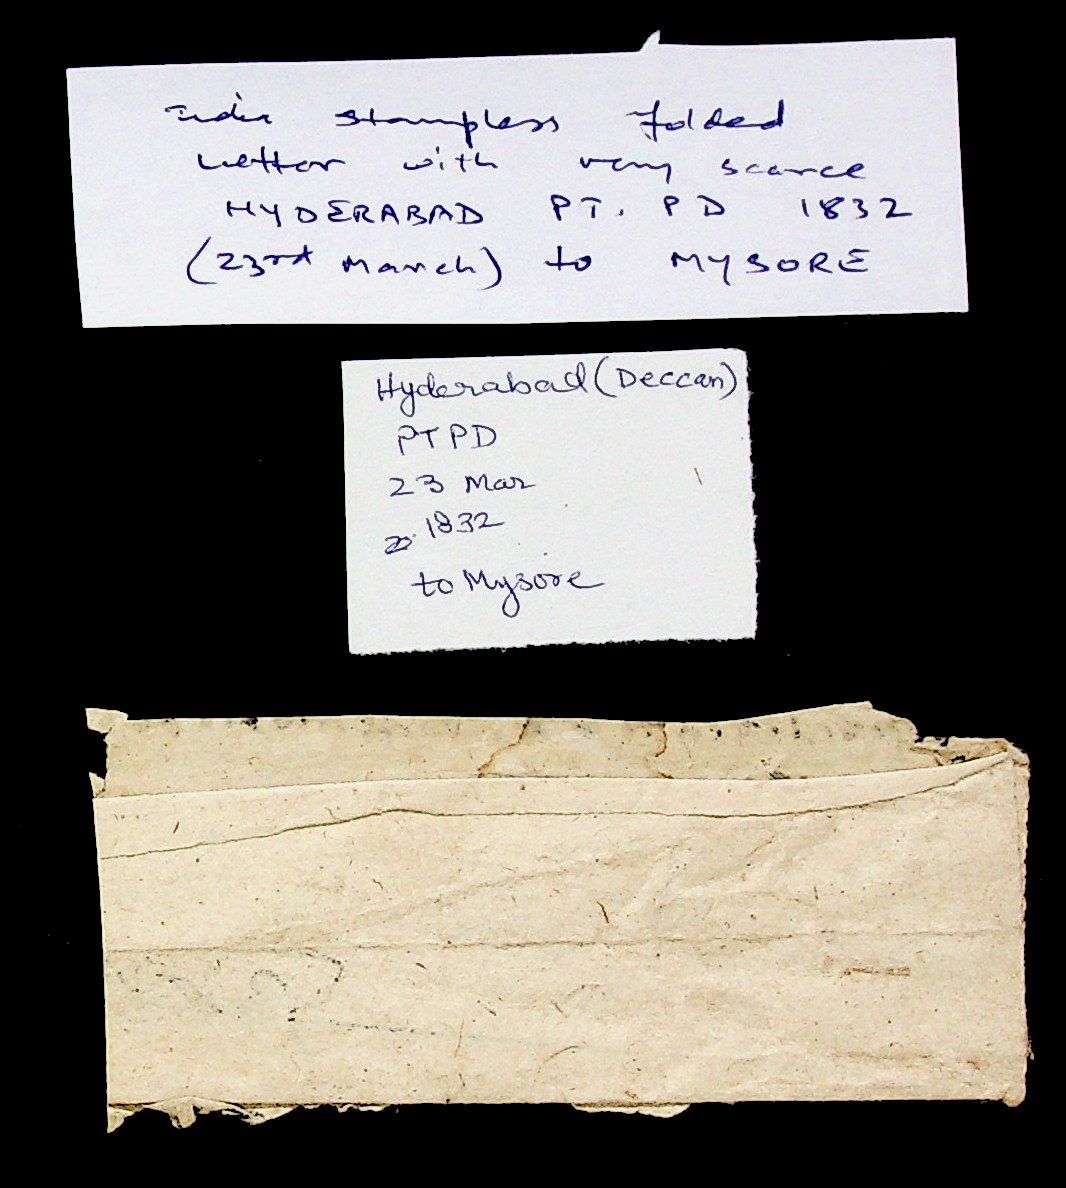 India stampless folded
Letter with very scarce
HYDERABAD PT. PD 1832
(23rd March) to MYSORE
Hyderabad (Deccan)
PTPD
23 Mar
1832
to Mysore